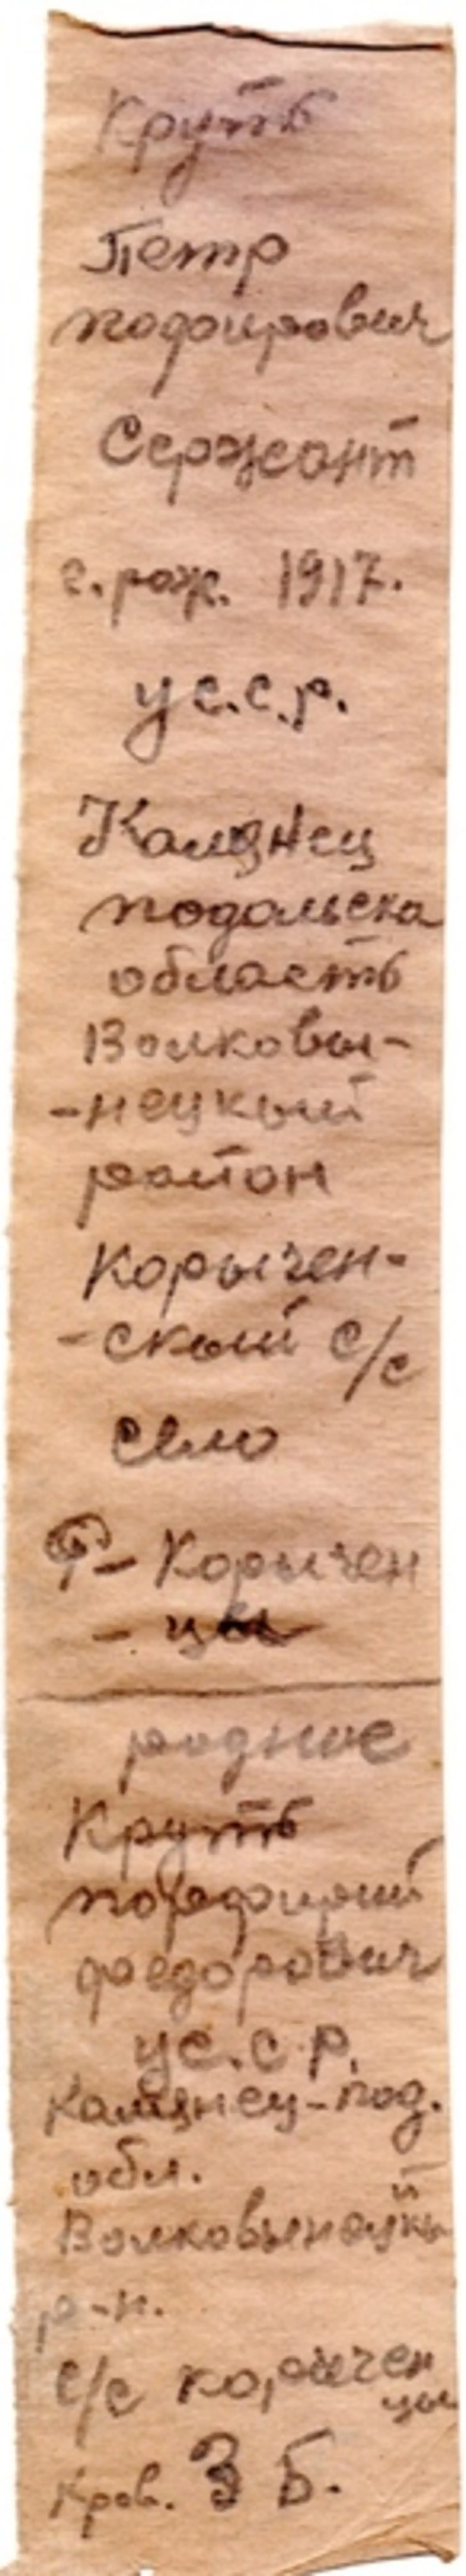 Круть
Петр
Порфирович
Сержант
г. рож. 1917.
У с.с.р.
Камянец
Подольска
область
Волковы-
-нецкый
район
Корычен-
-скый с/с
село
Ф- Корычен
- цы
родные
Круть
Порфирий
Федорович
Ус.с.р.
Камянец-под.
обл.
Волковынецкый
р-н.
с/с Корычен
цы
Кров. 3 Б.